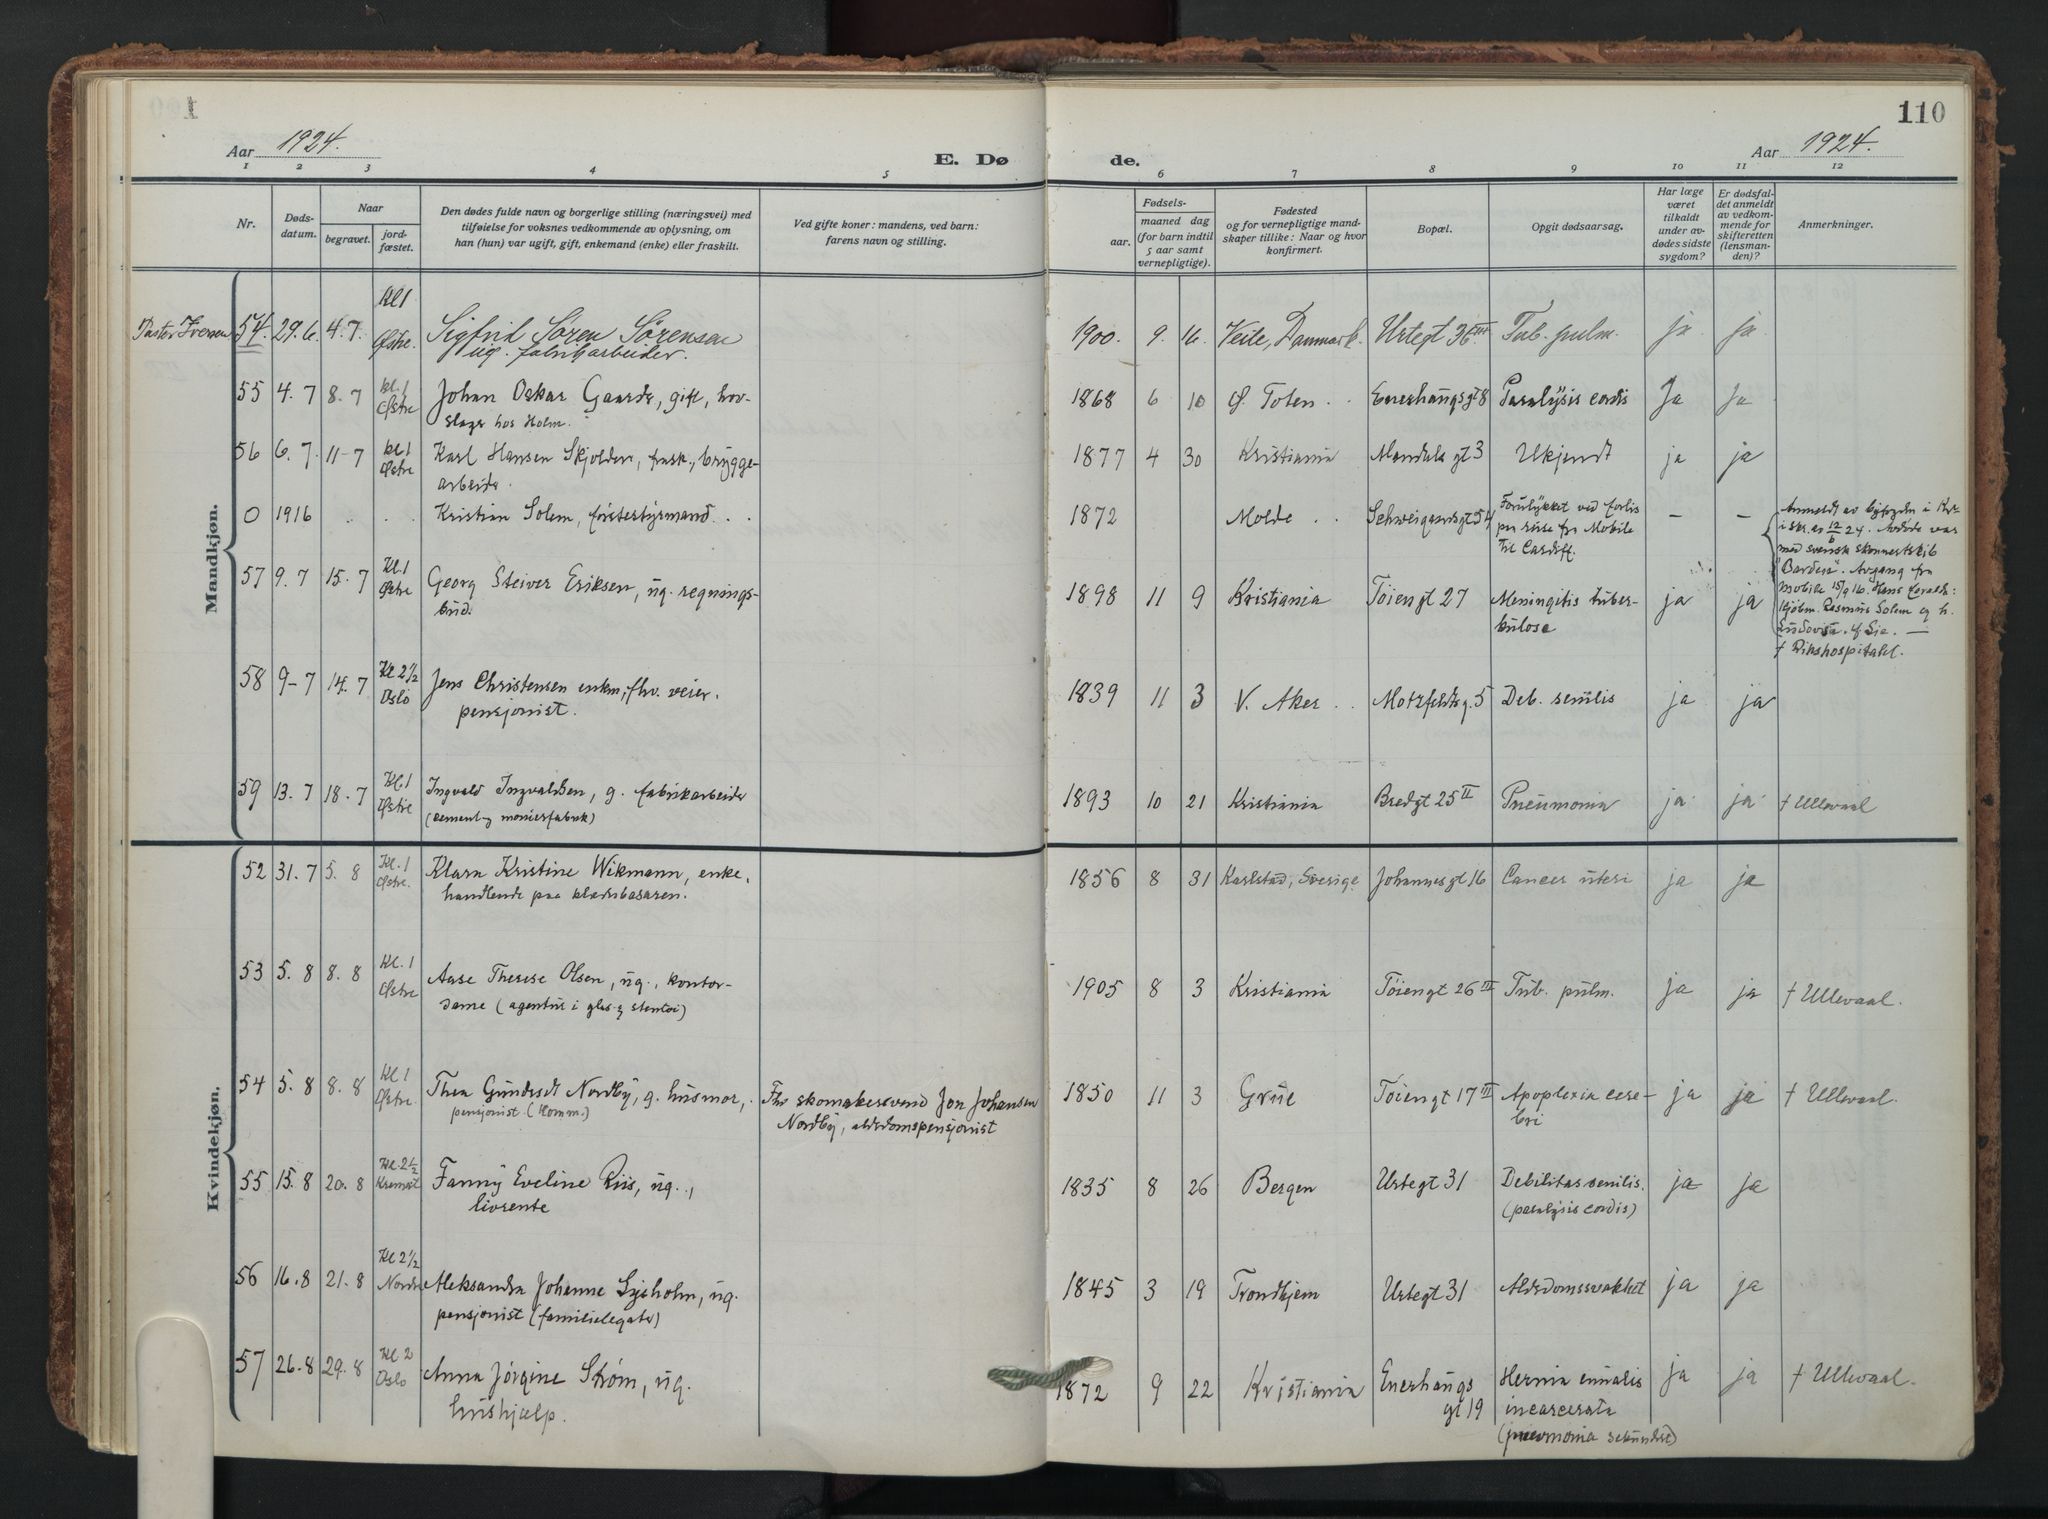 110
Aar 1924.
E. Døde.
Aar 1924.
1 2 3 4 5 6 7 8 9 10 11 12
Nr.
Døds-
datum.
Naar
begravet.
jord-
fæstet.
Den dødes fulde navn og borgerlige stilling (næringsvei) med
tilføielse for voksnes vedkommende av oplysning, om
han (hun) var ugift, gift, enkemand (enke) eller fraskilt.
Ved gifte koner: mandens, ved barn:
farens navn og stilling.
Fødsels-
aar.
maaned dag
(for barn indtil
5 aar samt
vernepligtige).
Fødested
og for vernepligtige mand-
skaper tillike: Naar og hvor
konfirmert.
Bopæl.
Opgit dødsaarsag.
Har læge
været
tilkaldt
under av-
dødes sidste
sygdom?
Er dødsfal-
det anmeldt
av vedkom-
mende for
skifteretten
(lensman-
den)?
Anmerkninger.
Mandkjøn.
Pastor Iversen 54 29.6 4.7 Kl 1 Østre. Sigfrid Søren Sørensen
ug. fabrikarbeider.
1900 9. 16. Veile, Danmark. Urtegt 36 III Tub. pulm. ja ja
55 4.7 8.7 kl.1 Østre Johan Oskar Gaarde, gift, hov-
slager hos Holm.
1868 6 10 Ø. Toten Enerhaugsgt 8 Paralysis cordis Ja Ja
56 6.7 11-7 kl 1 Østre Karl Hansen Skjolden, frask., brygge-
arbeider.
1877 4 30 Kristiania Mandals gt 3 Ukjendt ja ja
0 1916 . . Kristian Solem, førstestyrmand . .
1872 Molde . . Schweigaardsgt 54 Forulykket ved forlis
paa reise fra Mobile
til Cardiff.
- - Anmeldt av byfogden i Kr.a
i skr. av 12/6 24. Avdøde var
med svensk skonnertskib
"Barden". Avgang fra
Mobile 15/9 16. Hans foreldr:
kjøbm. Rasmus Solem og h.
57 9.7 15.7 Kl.1 Østre Georg Steiver Eriksen, ug. regnings-
bud.
1898 11 9 Kristiania Tøiengt 27 Meningitis tuber-
kulose ja ja
† Rikshospitalet.
58 9-7 14.7 Kl 2½ Oslo Jens Christensen enkm., fhv. veier.
pensjonist.
1839 11 3 V. Aker . . Motzfeldtsg. 5 Deb. senilis ja ja
59 13.7 18.7 Kl.1 Østre Ingvald Ingvaldsen, g. fabrikarbeider
(cement- og monierfabrik)
1893 10 21 Kristiania Bredgt 25 II Pneumonia ja ja † Ullevaal
Kvindekjøn.
52 31.7 5.8 Kl.1 Østre. Klara Kristine Wikmann, enke,
handlende paa klædesbasaren.
1856 8 31 Karlstad, Sverige Johannesgt 16 Cancer uteri ja ja
53 5.8 8.8 Kl.1 Østre Aase Therese Olsen, ug., kontor-
dame (agentur i glas og stentøi)
1905 8 3 Kristiania Tøiengt 26 III Tub. pulm. ja ja † Ullevaal.
54 5.8 8.8 Kl 1 Østre Thea Gundersdt Nordby, g. husmor,
pensjonist (Komm.)
Fhv skomakersvend Jon Johansen
Nordby, alderdomspensjonist
1850 11 3 Grue Tøiengt 17 III Apoplexia cere-
bri ja ja † Ullevaal.
55 15.8 20.8 Kl.2½ Kremat Fanny Eveline Riis, ug.,
livrente
1835 8 26 Bergen Urtegt 31 Debilitas senilis.
(paralysis cordis) ja ja
56 16.8 21.8 Kl 2½ Nordre Aleksandra Johanne Lysholm, ug.
pensjonist (familielegater)
1845 3 19 Trondhjem Urtegt 31 Alderdomssvakhet ja ja
57 26.8 29.8 Kl 2 Oslo Anna Jørgine Strøm, ug.
hushjælp.
1872 9 22 Kristiania Enerhaugs
gt 19 Hernia cruralis
incarcerata
(pneumonia sekundær) ja ja † Ullevaal.